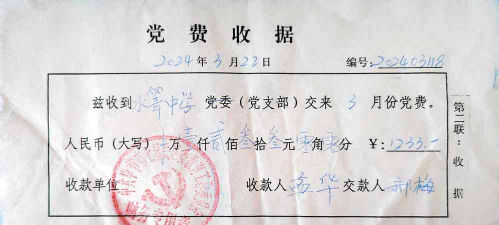 党费收据
2024年3月22日 编号:202403118
兹收到水箐中学党委（党支部）交来3月份党费。
人民币（大写） 万壹仟贰佰叁拾叁元零角零分 ¥:1233.-
收款单位 收款人孟华 交款人祁梅
第二联：收据
财务专用章